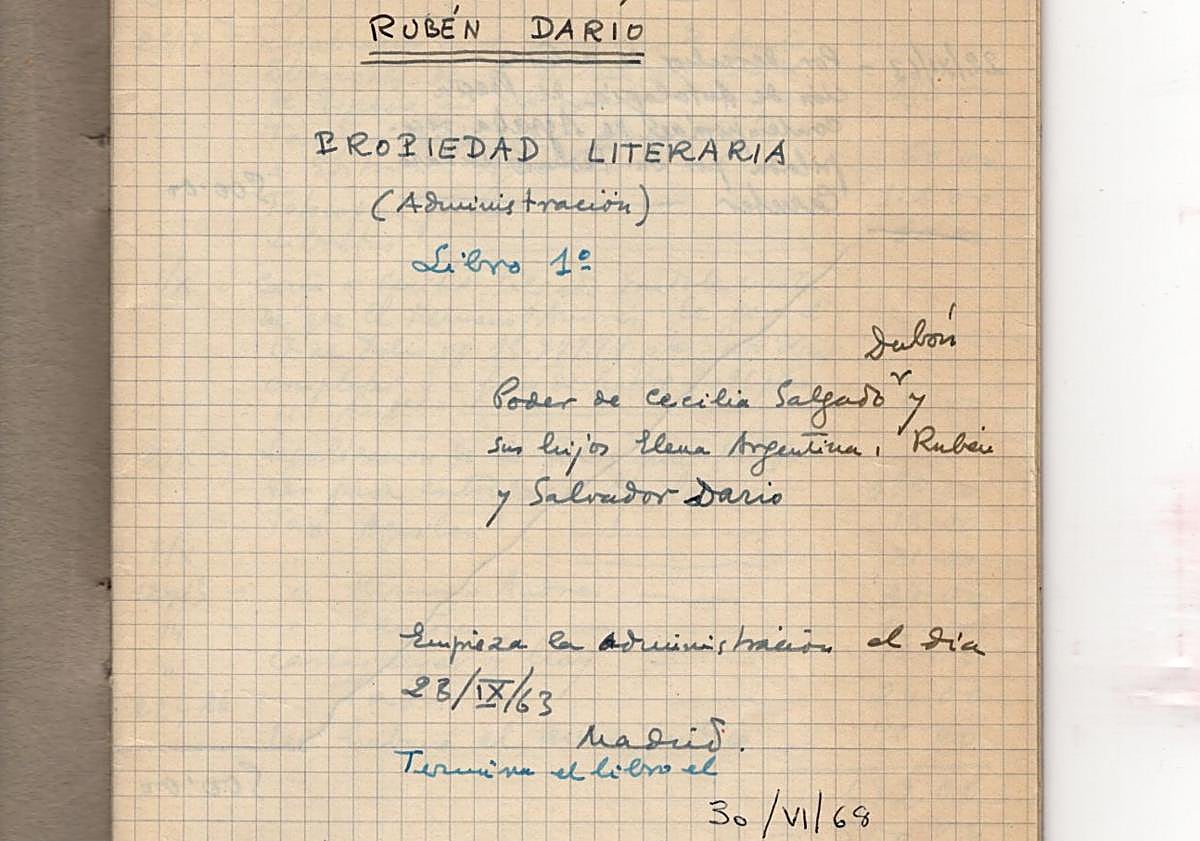 RUBÉN DARÍO
PROPIEDAD LITERARIA
(Administración)
Libro 1º
Dubón
Poder de Cecilia Salgado y
sus hijos Elena Argentina, Rubén
y Salvador Dario
Empieza la administración el día
23/IX/63
Madrid.
Termina el libro el
30/VI/68